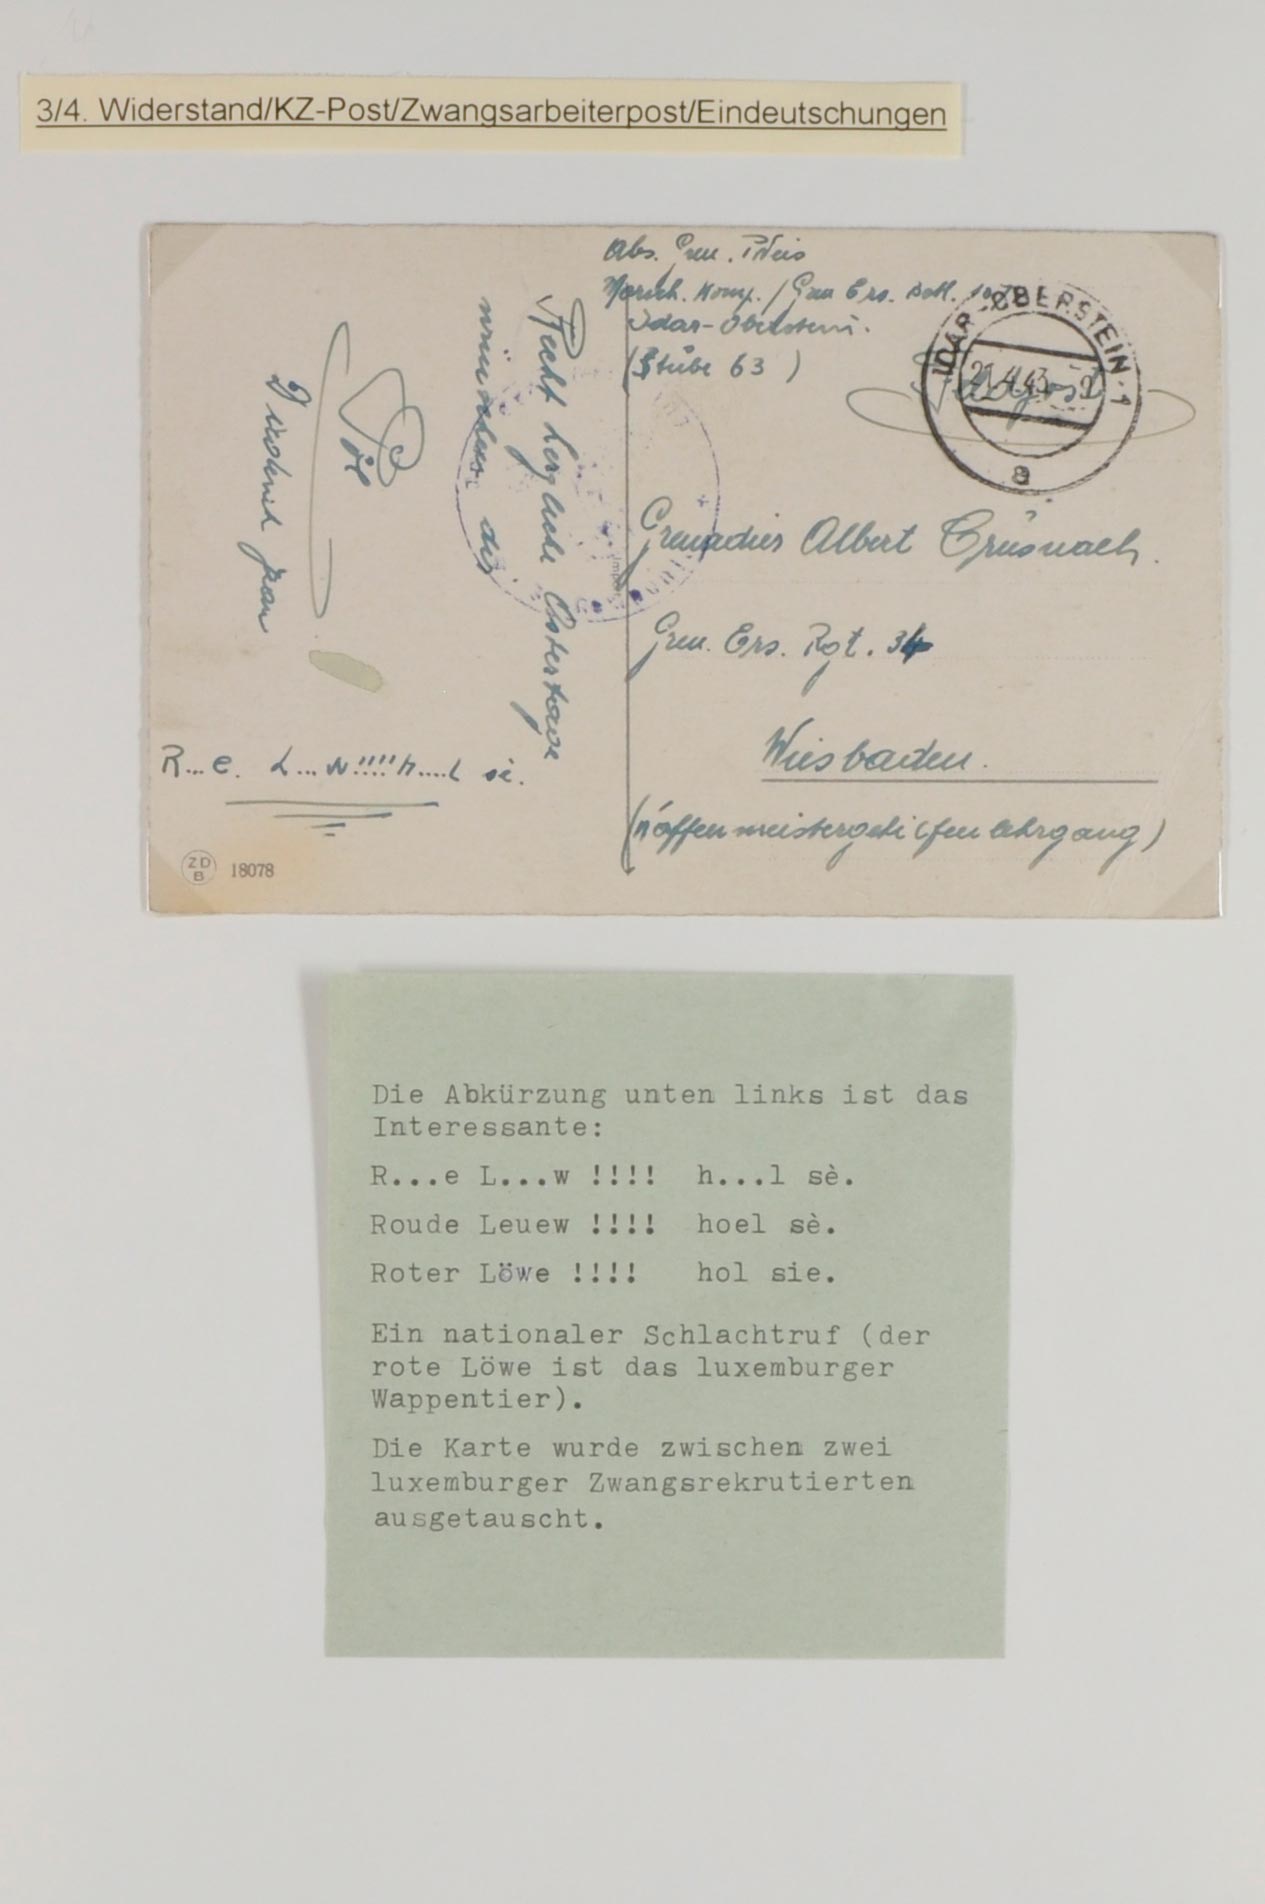 3/4. Widerstand/KZ-Post/Zwangsarbeiterpost/Eindeutschungen
Abs. Gren. P. Weis
Marsch. Komp. / Gren Ers. Batl. 107
Idar-Oberstein.
(Stube 63)
IDAR-OBERSTEIN 1
21.4.43
a
Feldpost
Grenadier Albert Grüsnach.
Gren. Ers. Rgt. 34
Wiesbaden.
(Waffenmeistergehilfenlehrgang)
Recht herzliche Ostertage
wünschen dir
R...e. L...w!!!! h....l sè.
ZD
B
18078
Die Abkürzung unten links ist das
Interessante:
R...e L...w !!!! h...l sè.
Roude Leuew !!!! hoel sè.
Roter Löwe !!!! hol sie.
Ein nationaler Schlachtruf (der
rote Löwe ist das luxemburger
Wappentier).
Die Karte wurde zwischen zwei
luxemburger Zwangsrekrutierten
ausgetauscht.